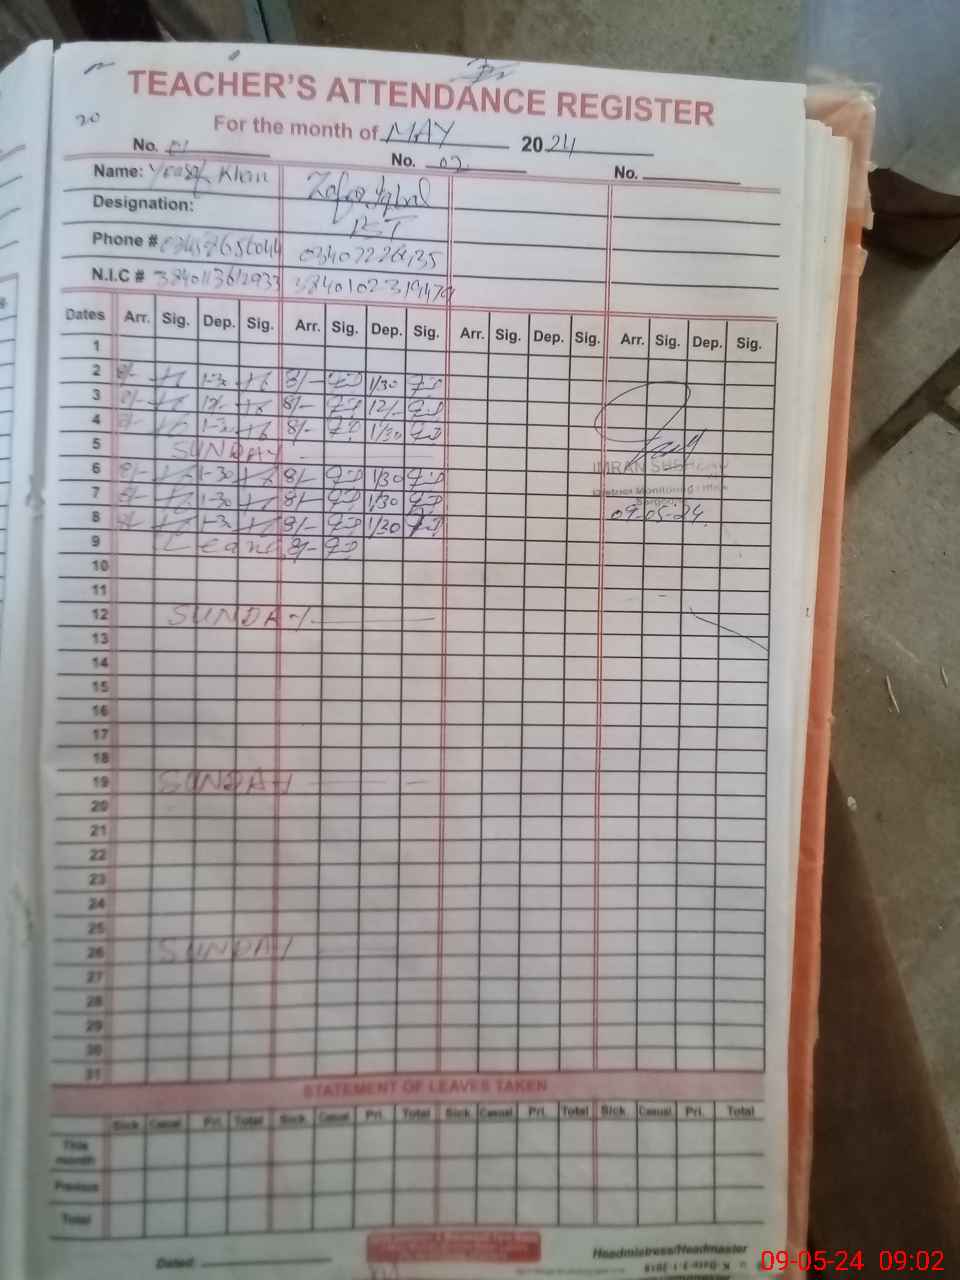 TEACHER'S ATTENDANCE REGISTER
20
For the month of MAY 2024
No. 01 No. 02 No.
Name: Yousaf Khan Zafar Iqbal
Designation: PST
Phone # 03407226435
N.I.C #
Dates Arr. Sig. Dep. Sig. Arr. Sig. Dep. Sig. Arr. Sig. Dep. Sig. Arr. Sig. Dep. Sig.
1
2 8/- 1-30 8/- 1/30
3 8/- 12/- 8/- 12/-
4 8/- 1-30 8/- 1/30
5 SUNDAY
6 8/- 1-30 8/- 1/30
7 8/- 1-30 8/- 1/30
8 8/- 1-30 8/- 1/30
9 Leave 8/-
10
11
12 SUNDAY
13
14
15
16
17
18
19 SUNDAY
20
21
22
23
24
25
26 SUNDAY
27
28
29
30
31
IMRAN
District Monitoring Officer
09-05-24
STATEMENT OF LEAVES TAKEN
Sick Casual Pri. Total Sick Casual Pri. Total Sick Casual Pri. Total Sick Casual Pri. Total
This month
Previous
Total
Dated: Headmistress/Headmaster
09-05-24 09:02